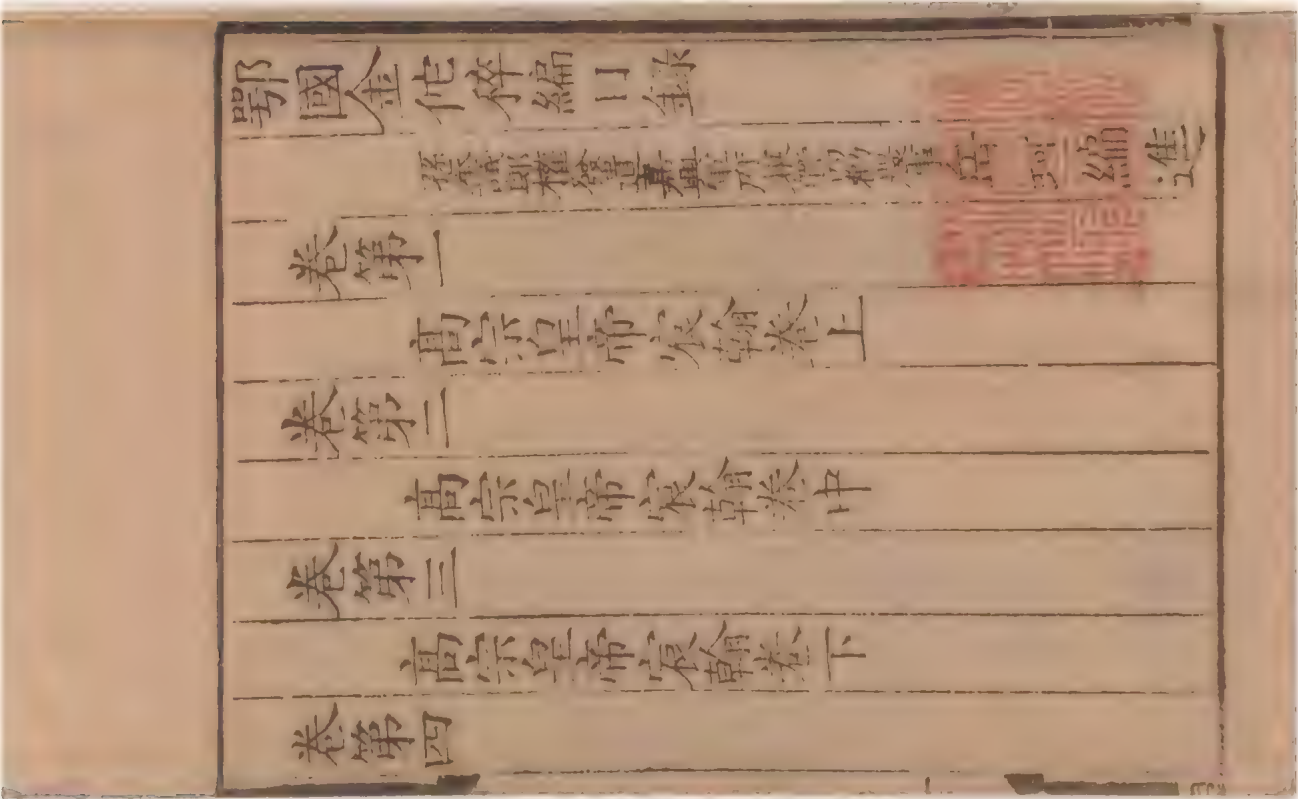 鄂國金佗稡編目錄
孫奉議郎權發遣嘉興軍府兼管內勸農事岳珂編進
卷第一
高宗皇帝宸翰卷上
卷第二
高宗皇帝宸翰卷中
卷第三
高宗皇帝宸翰卷下
卷第四